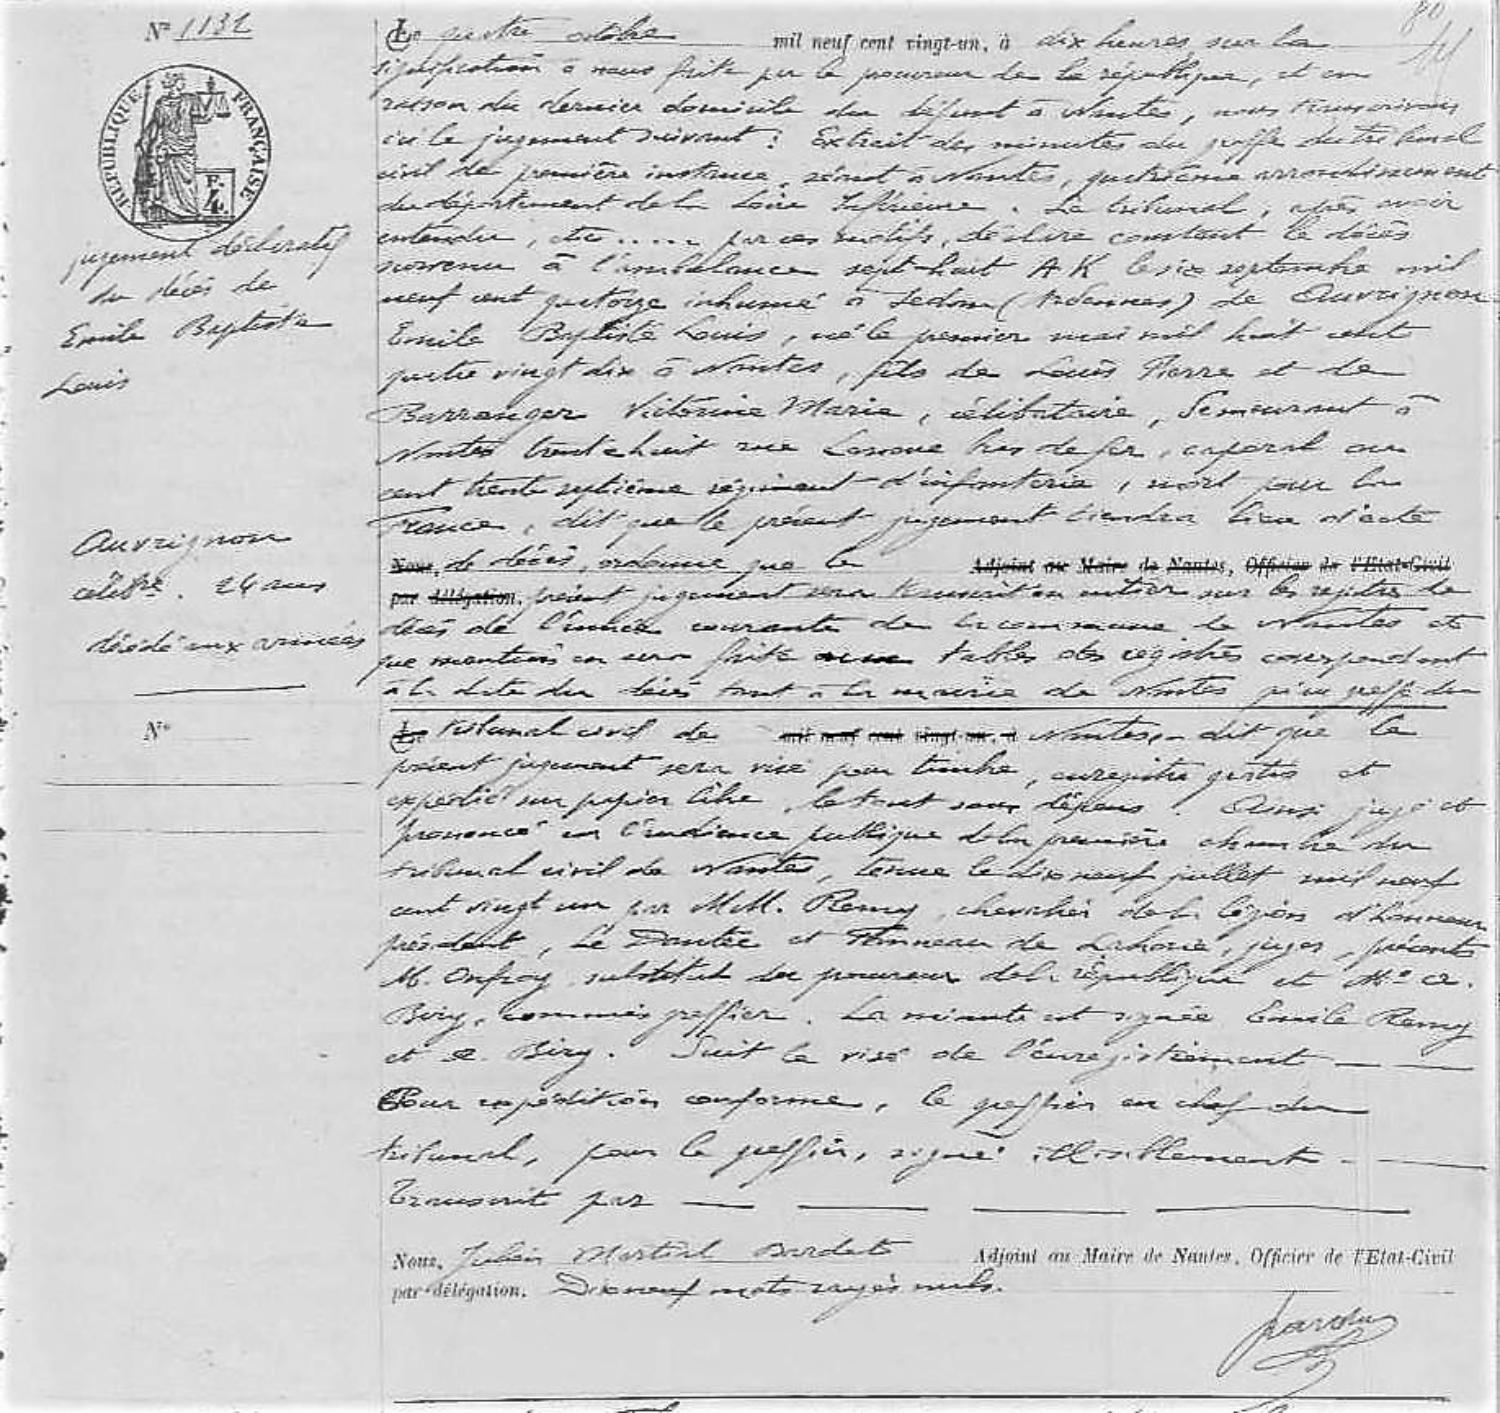 N° 1132
RÉPUBLIQUE FRANÇAISE
F. 4.
jugement déclaratif
du décès de
Emile Baptiste
Louis
Auvrignon
célibre. 24 ans
décédé aux armées
N°
Le quatre octobre mil neuf cent vingt-un, à dix heures, sur la
signification à nous faite par le procureur de la république, et en
raison du dernier domicile du défunt à Nantes, nous transcrivons
ici le jugement suivant : Extrait des minutes du greffe du tribunal
civil de première instance, séant à Nantes, quatrième arrondissement
du département de la Loire Inférieure. Le tribunal, après avoir
entendu, etc ..... par ces motifs, déclare constant le décès
survenu à l'ambulance sept-huit A K le six septembre mil
neuf cent quatorze inhumé à Sedan (Ardennes) de Auvrignon
Emile Baptiste Louis, né le premier mai mil huit cent
quatre vingt dix à Nantes, fils de Louis Pierre et de
Barranger Victorine Marie, célibataire, demeurant à
Nantes trente huit rue Lanoue bras de fer, caporal au
cent trente septième régiment d'infanterie, mort pour la
France, dit que le présent jugement tiendra lieu d'acte
Nous, de décès, ordonne que le Adjoint au Maire de Nantes, Officier de l'Etat-Civil
par délégation, présent jugement sera transcrit en entier sur les registres de
décès de l'année courante de la commune de Nantes et
que mention en sera faite aux tables des registres correspondant
à la date du décès tant à la mairie de Nantes qu'au greffe du
Le tribunal civil de mil neuf cent vingt-un, à Nantes, - dit que le
présent jugement sera visé pour timbre, enregistré gratis et
expédié sur papier libre, le tout sans dépens. Ainsi jugé et
prononcé en l'audience publique de la première chambre du
tribunal civil de Nantes, tenue le dix neuf juillet mil neuf
cent vingt un par MM. Remy, chevalier de la légion d'honneur
président, Le Dantec et de juges, présents
M. Onfroy, substitut du procureur de la république et Me
Biry, commis greffier. La minute est signée Emile Remy
et Biry. Suit le visé de l'enregistrement
Pour expédition conforme, le greffier en chef du
tribunal, pour le greffier, signé illisiblement
Transcrit par
Nous, Julien Martial Bardet Adjoint au Maire de Nantes, Officier de l'Etat-Civil
par délégation. Dix neuf mots rayés nuls.